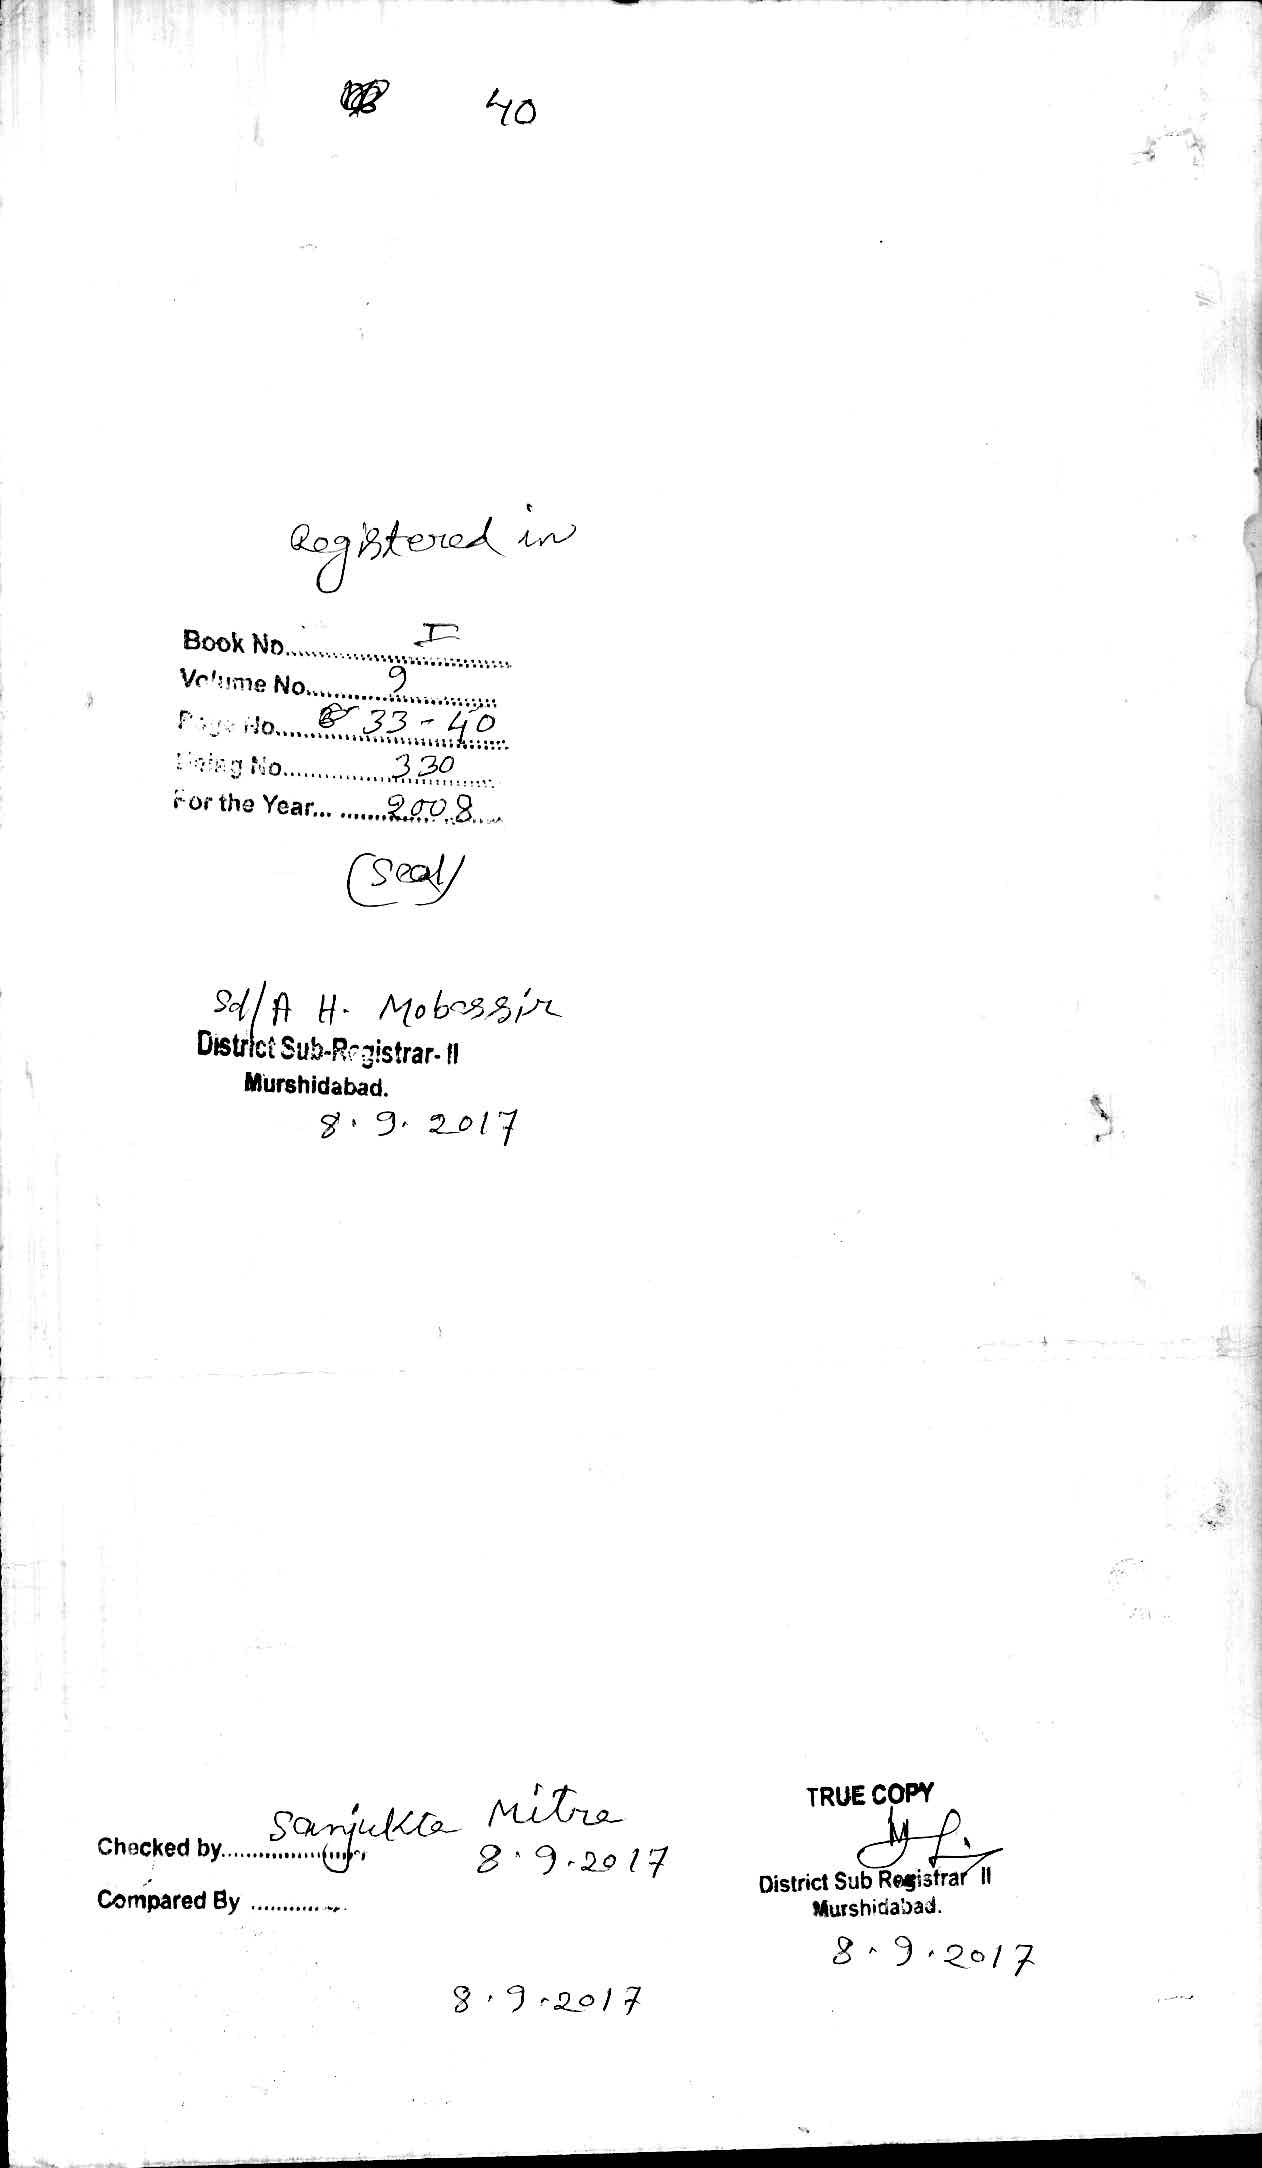 40
Registered in
Book No. I
Volume No. 9
Page No. 33 - 40
Being No. 330
For the Year... 2008
(Seal)
Sd/A H. Mobassir
District Sub-Registrar- II
Murshidabad.
8. 9. 2017
TRUE COPY
Sanjukta Mitra
Checked by 8.9.2017
District Sub Registrar II
Compared By
Murshidabad.
8.9.2017
8.9.2017